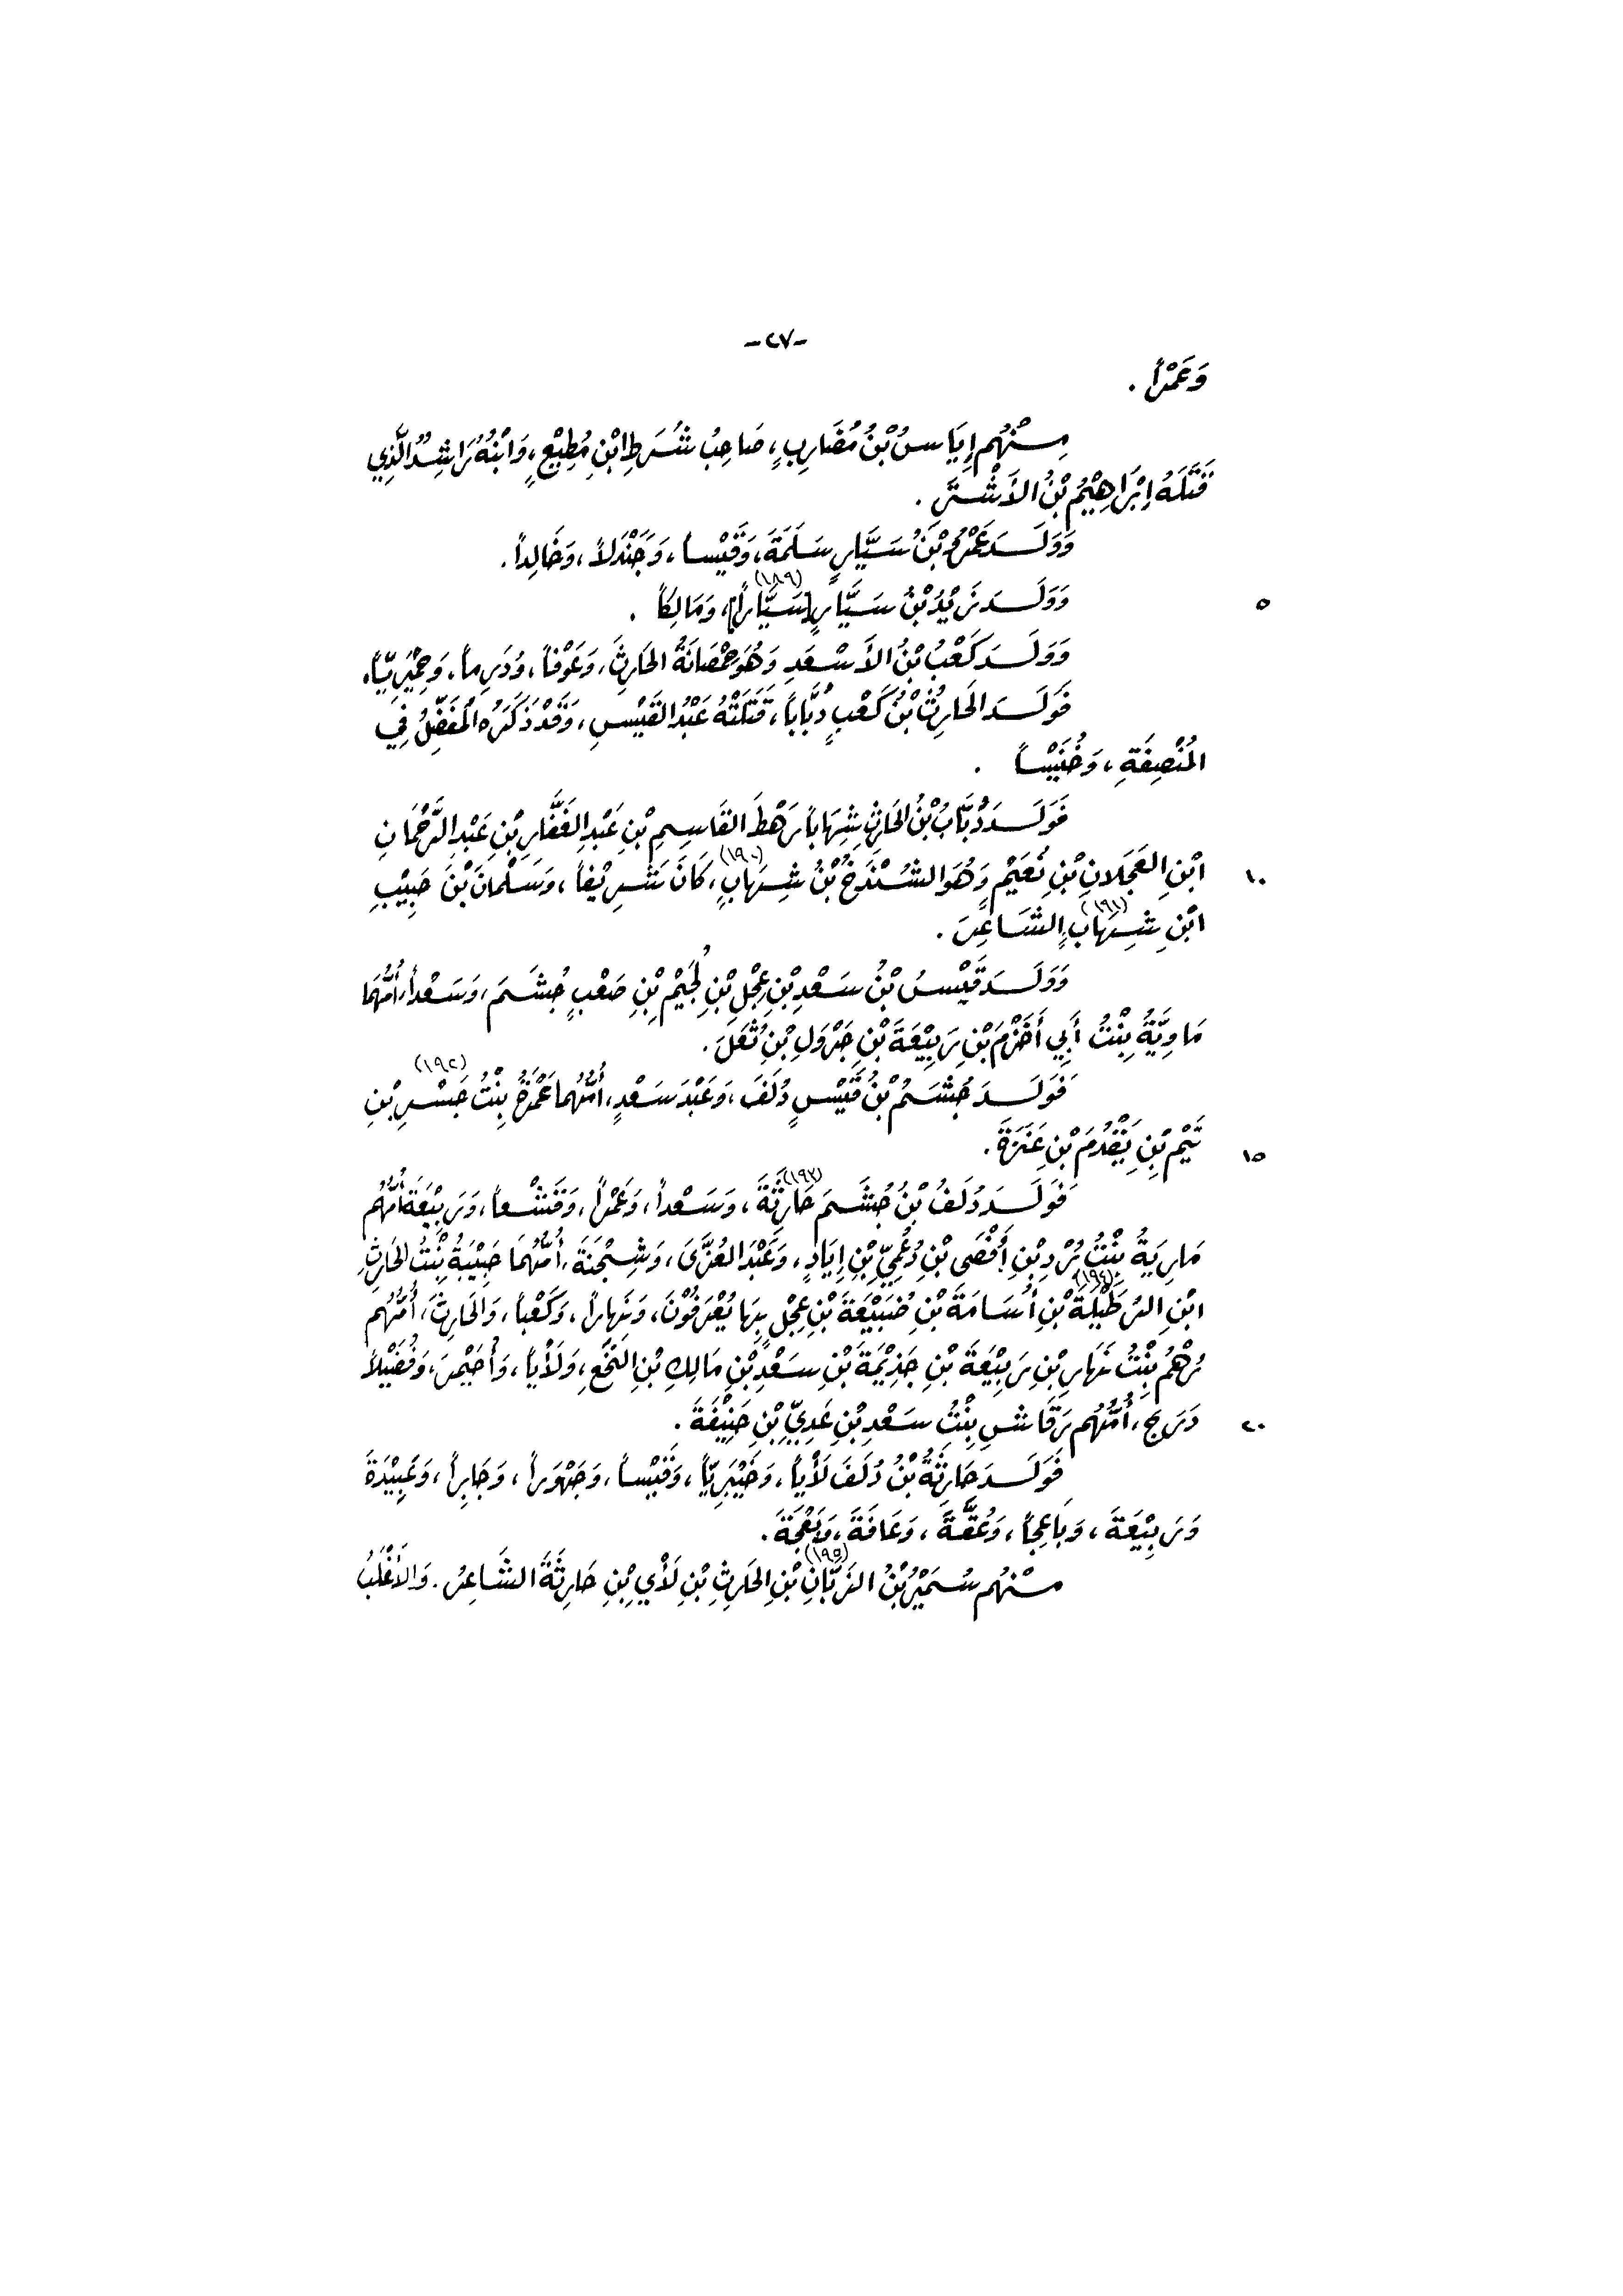 -٢٧-
وَعَمْراً .
مِنْهُم إِيَاسُ بْنُ مُضَارِبٍ، صَاحِبُ شُرَطِ ابْنِ مُطِيْعٍ، وَابْنُهُ رَاشِدُ الَّذِي
قَتَلَهُ إِبْرَاهِيْمُ بْنُ الأَشْتَرِ .
وَوَلَدَ عَمْرُو بْنُ سَيَّارٍ سَلَمَةَ، وَقَيْساً، وَجَنْدَلاً، وَخَالِداً.
٥ وَوَلَدَ زَيْدُ بْنُ سَيَّارٍ [سَيَّاراً]، (١٨٩) وَمَالِكاً .
وَوَلَدَ كَعْبُ بْنُ الأَسْعَدِ وَهُوَ حُمْصَانَةُ الحَارِثَ، وَعَوْفاً، وَدَرِماً، وَحِمْيَرِيّاً.
فَوَلَدَ الحَارِثُ بْنُ كَعْبٍ دُبَّاباً، قَتَلَتْهُ عَبْدُ القَيْسِ، وَقَدْ ذَكَرَهُ المُفَضَّلُ فِي
المُنْصِفَةِ، وَخُنَيْساً .
فَوَلَدَ دُبَّابُ بْنُ الحَارِثِ شِهَاباً رَهْطَ القَاسِمِ بْنِ عَبْدِ الغَفَّارِ بْنِ عَبْدِ الرَّحْمَانِ
١٠ ابْنِ العَجْلانِ بْنِ نُعَيْمٍ وَهُوَ الشُنْدَخُ بْنُ شِهَابٍ، (١٩٠) كَانَ شَرِيْفاً، وَسَلْمَانَ بْنَ حَبِيْبِ
ابْنِ شِهَابٍ (١٩١) الشَاعِرَ .
وَوَلَدَ قَيْسُ بْنُ سَعْدِ بْنِ عِجْلِ بْنِ لُجَيْمِ بْنِ صَعْبٍ جُشَمَ، وَسَعْداً، أُمُّهُمَا
مَاوِيَّةُ بِنْتُ أَبِي أَخْزَمَ بْنِ رَبِيْعَةَ بْنِ جَرْوَلِ بْنِ ثُعَلَ.
فَوَلَدَ جُشَمُ بْنُ قَيْسٍ دُلَفَ، وَعَبْدَ سَعْدٍ، أُمُّهُمَا عَمْرَةُ بِنْتُ جَسْرِ (١٩٢) بْنِ
١٥ تَيْمِ بْنِ يَقْدُمَ بْنِ عَنَزَةَ.
فَوَلَدَ دُلَفُ بْنُ جُشَمَ حَارِثَةَ، (١٩٣) وَسَعْداً، وَعَمْراً، وَقَشْعاً، وَرَبِيْعَةَ أُمُّهُم
مَارِيَةُ بِنْتُ بُرْدِ بْنِ أَفْصَى بْنِ دُعْمِيِّ بْنِ إِيَادٍ، وَعَبْدَ العُزَّى، وَشِجْنَةَ، أُمُّهُمَا حَبِيْبَةُ بِنْتُ الحَارِثِ
ابْنِ الرَطْبِلَةِ (١٩٤) بْنِ أُسَامَةَ بْنِ ضُبَيْعَةَ بْنِ عِجْلٍ بِهَا يُعْرَفُوْنَ، وَنَهَاراً، وَكَعْباً، وَالحَارِثَ، أُمُّهُم
رُهْمُ بِنْتُ نَهَارِ بْنِ رَبِيْعَةَ بْنِ جَذِيْمَةَ بْنِ سَعْدِ بْنِ مَالِكِ بْنِ النَخَعِ، وَلَأْياً، وَأُجَيْمِرَ، وَفُضَيْلاً
٢٠ دَرَجَ، أُمُّهُم رَقَاشِ بِنْتُ سَعْدِ بْنِ عَدِيِّ بْنِ حَنِيْفَةَ .
فَوَلَدَ حَارِثَةُ بْنُ دُلَفَ لَأْياً، وَخَيْبَرِيّاً، وَقَيْساً، وَجَهْوَراً، وَجَابِراً، وَعَبِيْدَةَ
وَرَبِيْعَةَ، وَبَاعِجاً، وَعُقَّةَ، وَعَافَةَ، وَبَعْجَةَ.
مِنْهُم سُمَيْرُ بْنُ الزَبَّانِ (١٩٥) بْنِ الحَارِثِ بْنِ لَأْيِ بْنِ حَارِثَةَ الشَاعِرُ. وَالأَغْلَبُ